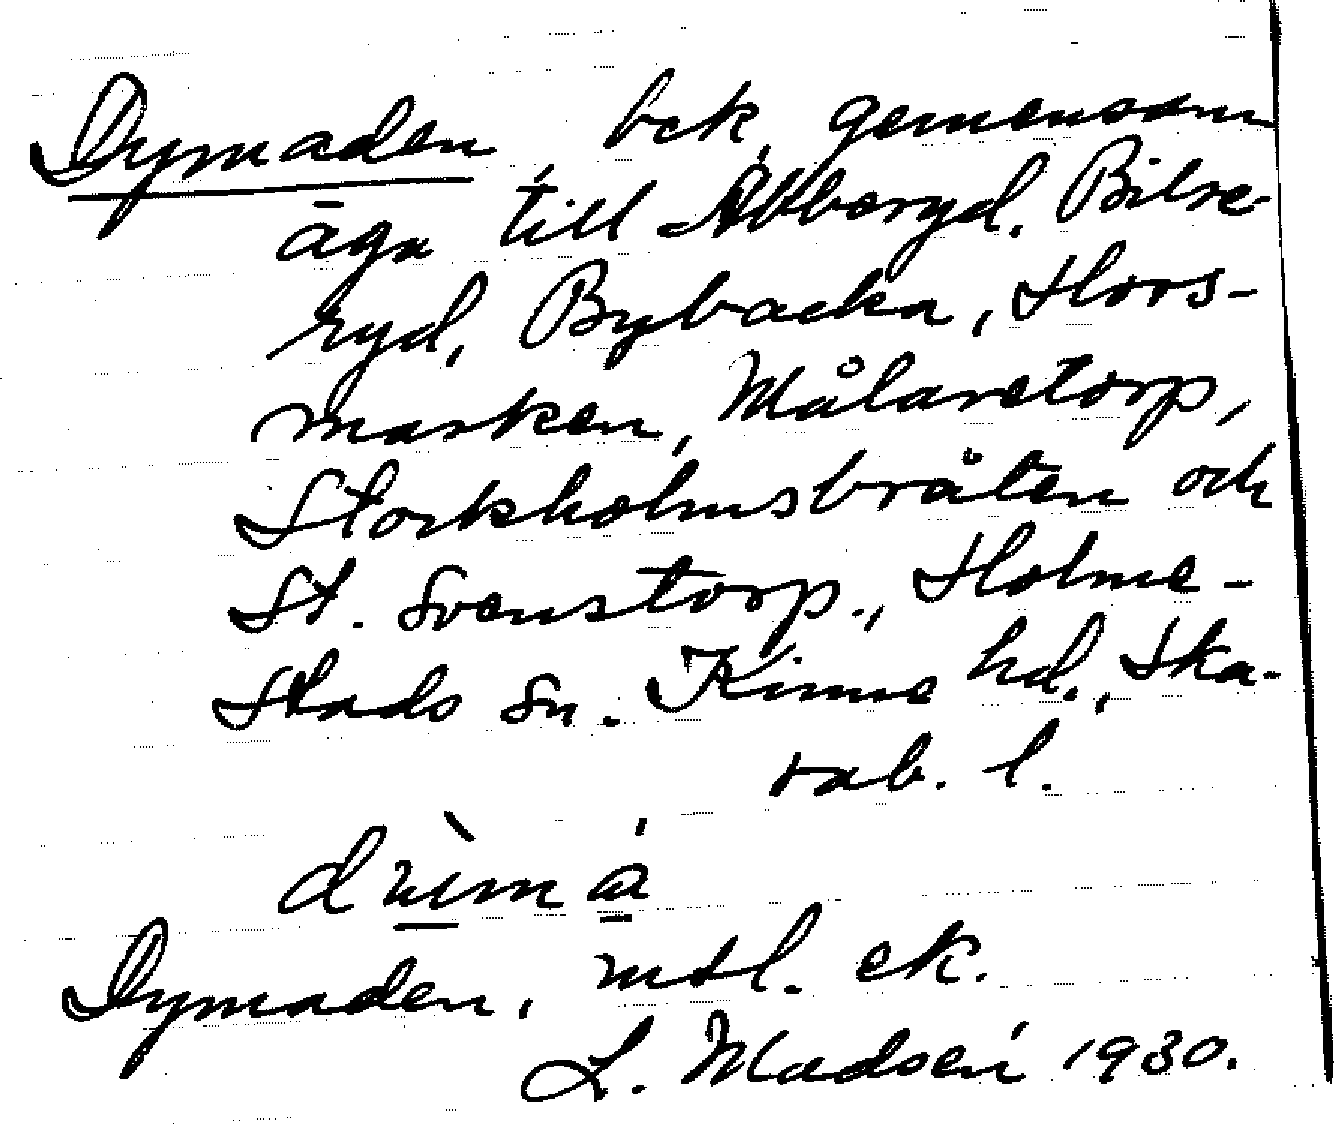 Dymaden, bek, gemensam
äga till Abberyd. Bilse-
ryd, Bybacka, Hors-
marken, Målaretorp,
Stockholmsbråten och
St. Svenstorp., Holme-
stads sn. Kinne hd., Ska-
rab. l.
Dymaden, mtl. ek.
L. Madsén 1930.